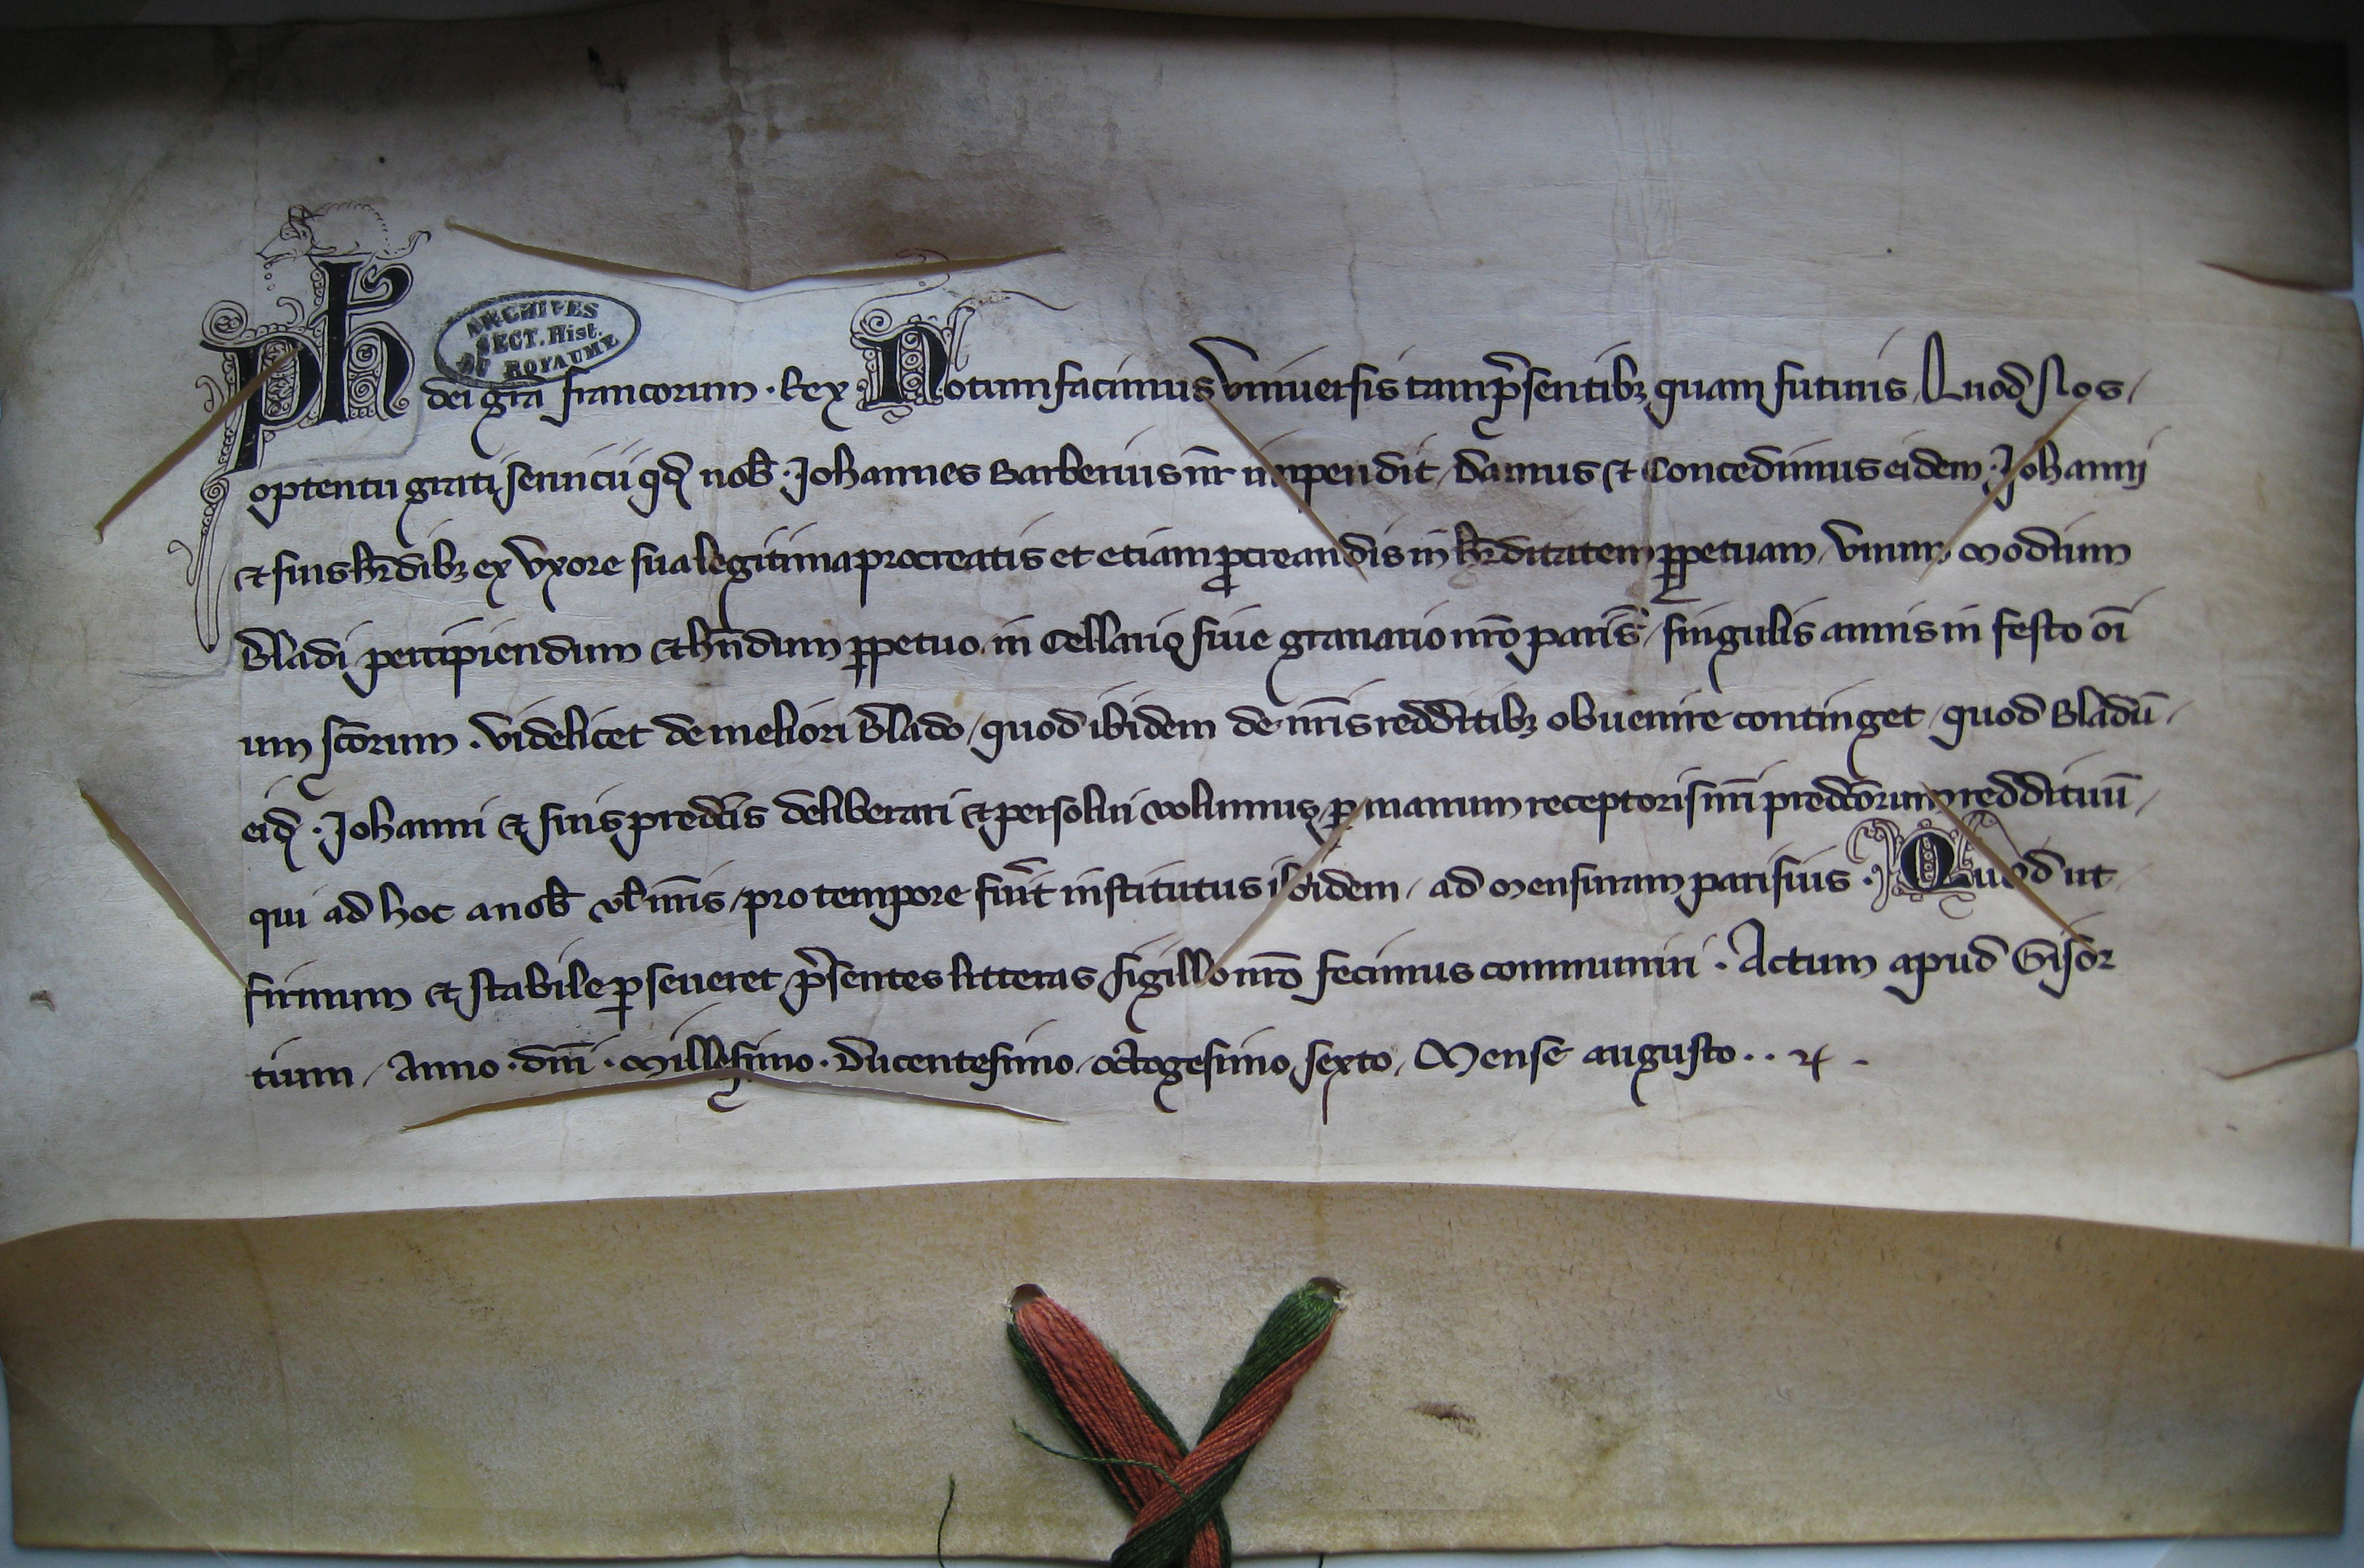 ARCHIVES
SECT. Hist.
DU ROYAUME
Ph dei gr̃a francorum · Rex · Notum facimus Vniuersis tam p̃sentibꝫ quam futuris, Quod Nos /
optentu grati seruicii qđ nob̃ · Johannes Barberius nr̃ impendit / Damus ⁊ Concedimus eidem · Johanni
⁊ suis hr̃dibꝫ ex Vxore sua legitima procreatis et etiam ꝓcreandis in hr̃ditatem ꝑpetuam / Vnum modium
Bladi percipiendum ⁊ hñdum ꝑpetuo in Cellario siue granario nr̃o paris̃ / singulis annis in festo oı̃
um sc̃orum · Videlicet de meliori Blado / quod ibidem de nr̃is redditibꝫ obuenire continget / quod Bladũ /
eiđ · Johanni ⁊ suis predc̃is deliberari ⁊ persolui volumus, ꝑ manum receptoris nr̃i predc̃orum reddituũ /
qui ad hoc a nob̃ vl̃ nr̃is / pro tempore fũit institutus ibidem / ad mensuram parisius · Quod ut
firmum ⁊ stabile ꝑseueret p̃sentes litteras sigillo nr̃o fecimus communiri · Actum apud Gisor
tium / Anno · dñi · Millesimo · Ducentesimo / octogesimo sexto, Mense augusto · ·